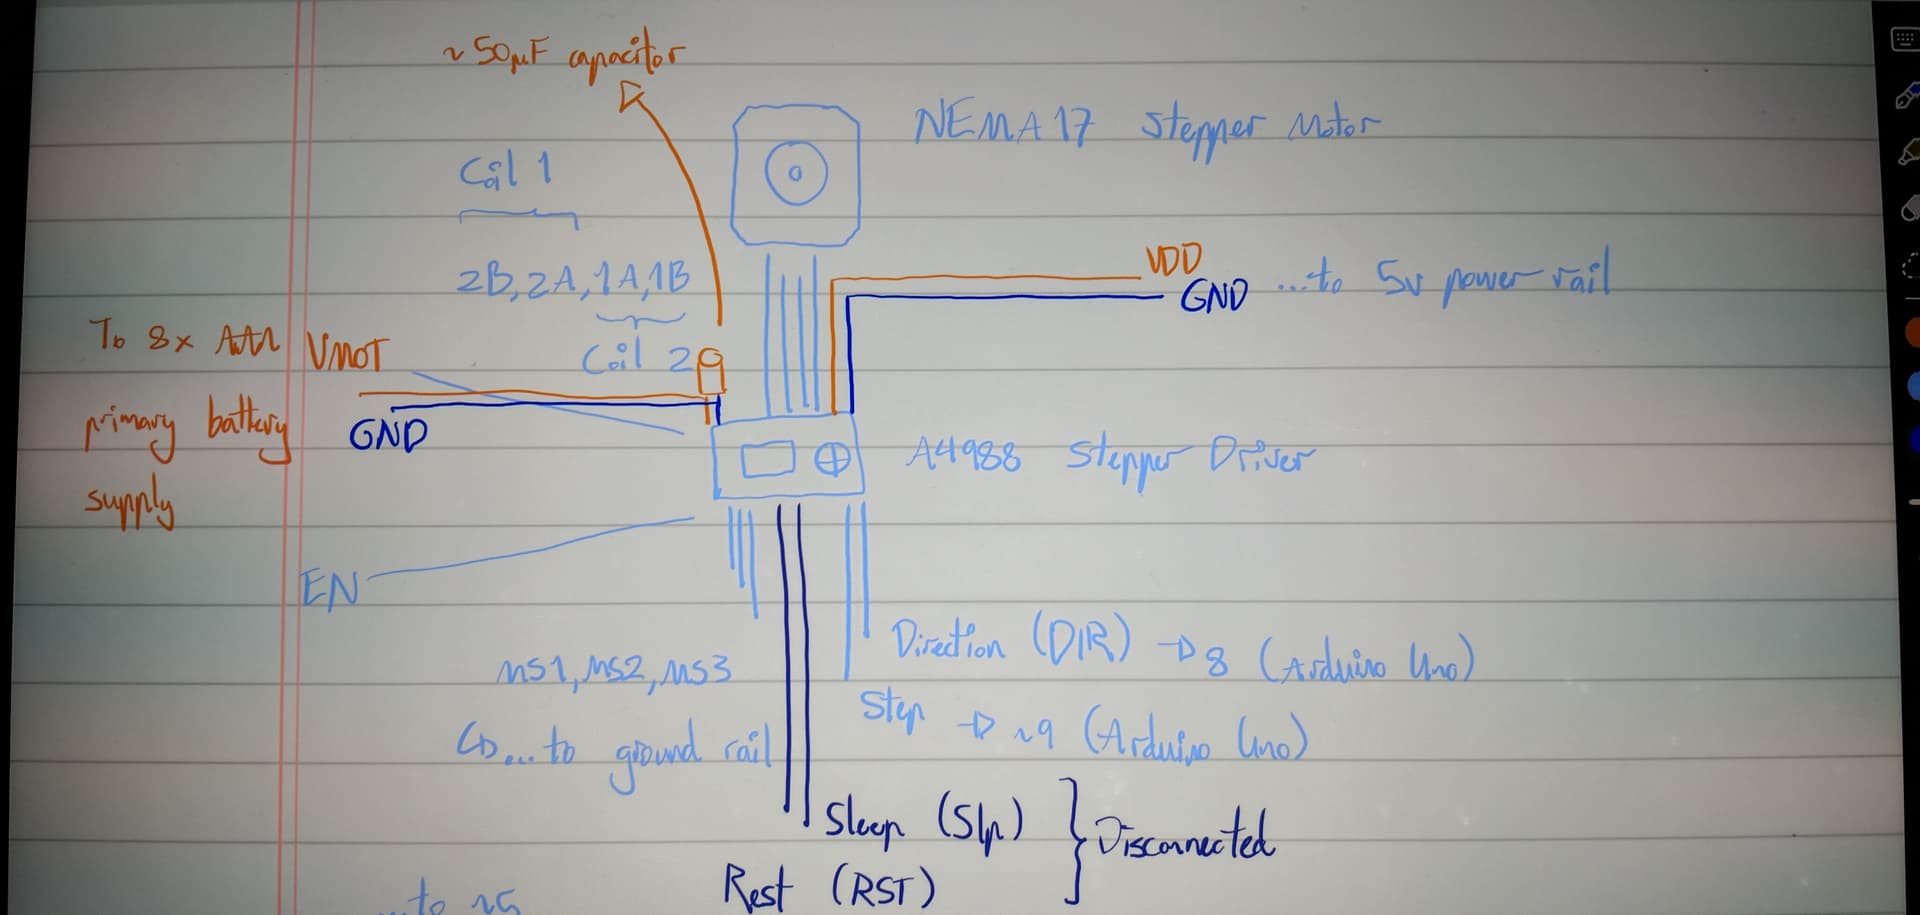 ~50µF capacitor
NEMA17 Stepper Motor
Coil 1
2B, 2A, 1A, 1B
Coil 2
VDD
GND ...to 5v power rail
To 8x AAA
primary battery
supply
VMOT
GND
A4988 Stepper Driver
EN
MS1, MS2, MS3
...to ground rail
Direction (DIR) → 8 (Arduino Uno)
Step → ~9 (Arduino Uno)
Sleep (Slp)
Rest (RST)
Disconnected
...to